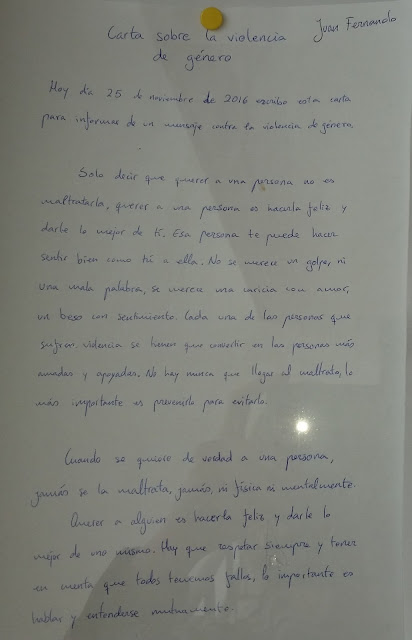 Juan Fernando
Carta sobre la violencia
de género
Hoy día 25 de noviembre de 2016 escribo esta carta
para informar de un mensaje contra la violencia de género.
Solo decir que querer a una persona no es
maltratarla, querer a una persona es hacerla feliz y
darle lo mejor de ti. Esa persona te puede hacer
sentir bien como tú a ella. No se merece un golpe, ni
una mala palabra, se merece una caricia con amor,
un beso con sentimiento. Cada una de las personas que
sufren violencia se tienen que convertir en las personas más
amadas y apoyadas. No hay nunca que llegar al maltrato, lo
más importante es prevenirlo para evitarlo.
Cuando se quiere de verdad a una persona,
jamás se la maltrata, jamás, ni física ni mentalmente.
Querer a alguien es hacerla feliz y darle lo
mejor de uno mismo. Hay que respetar siempre y tener
en cuenta que todos tenemos fallos, lo importante es
hablar y entenderse mutuamente.